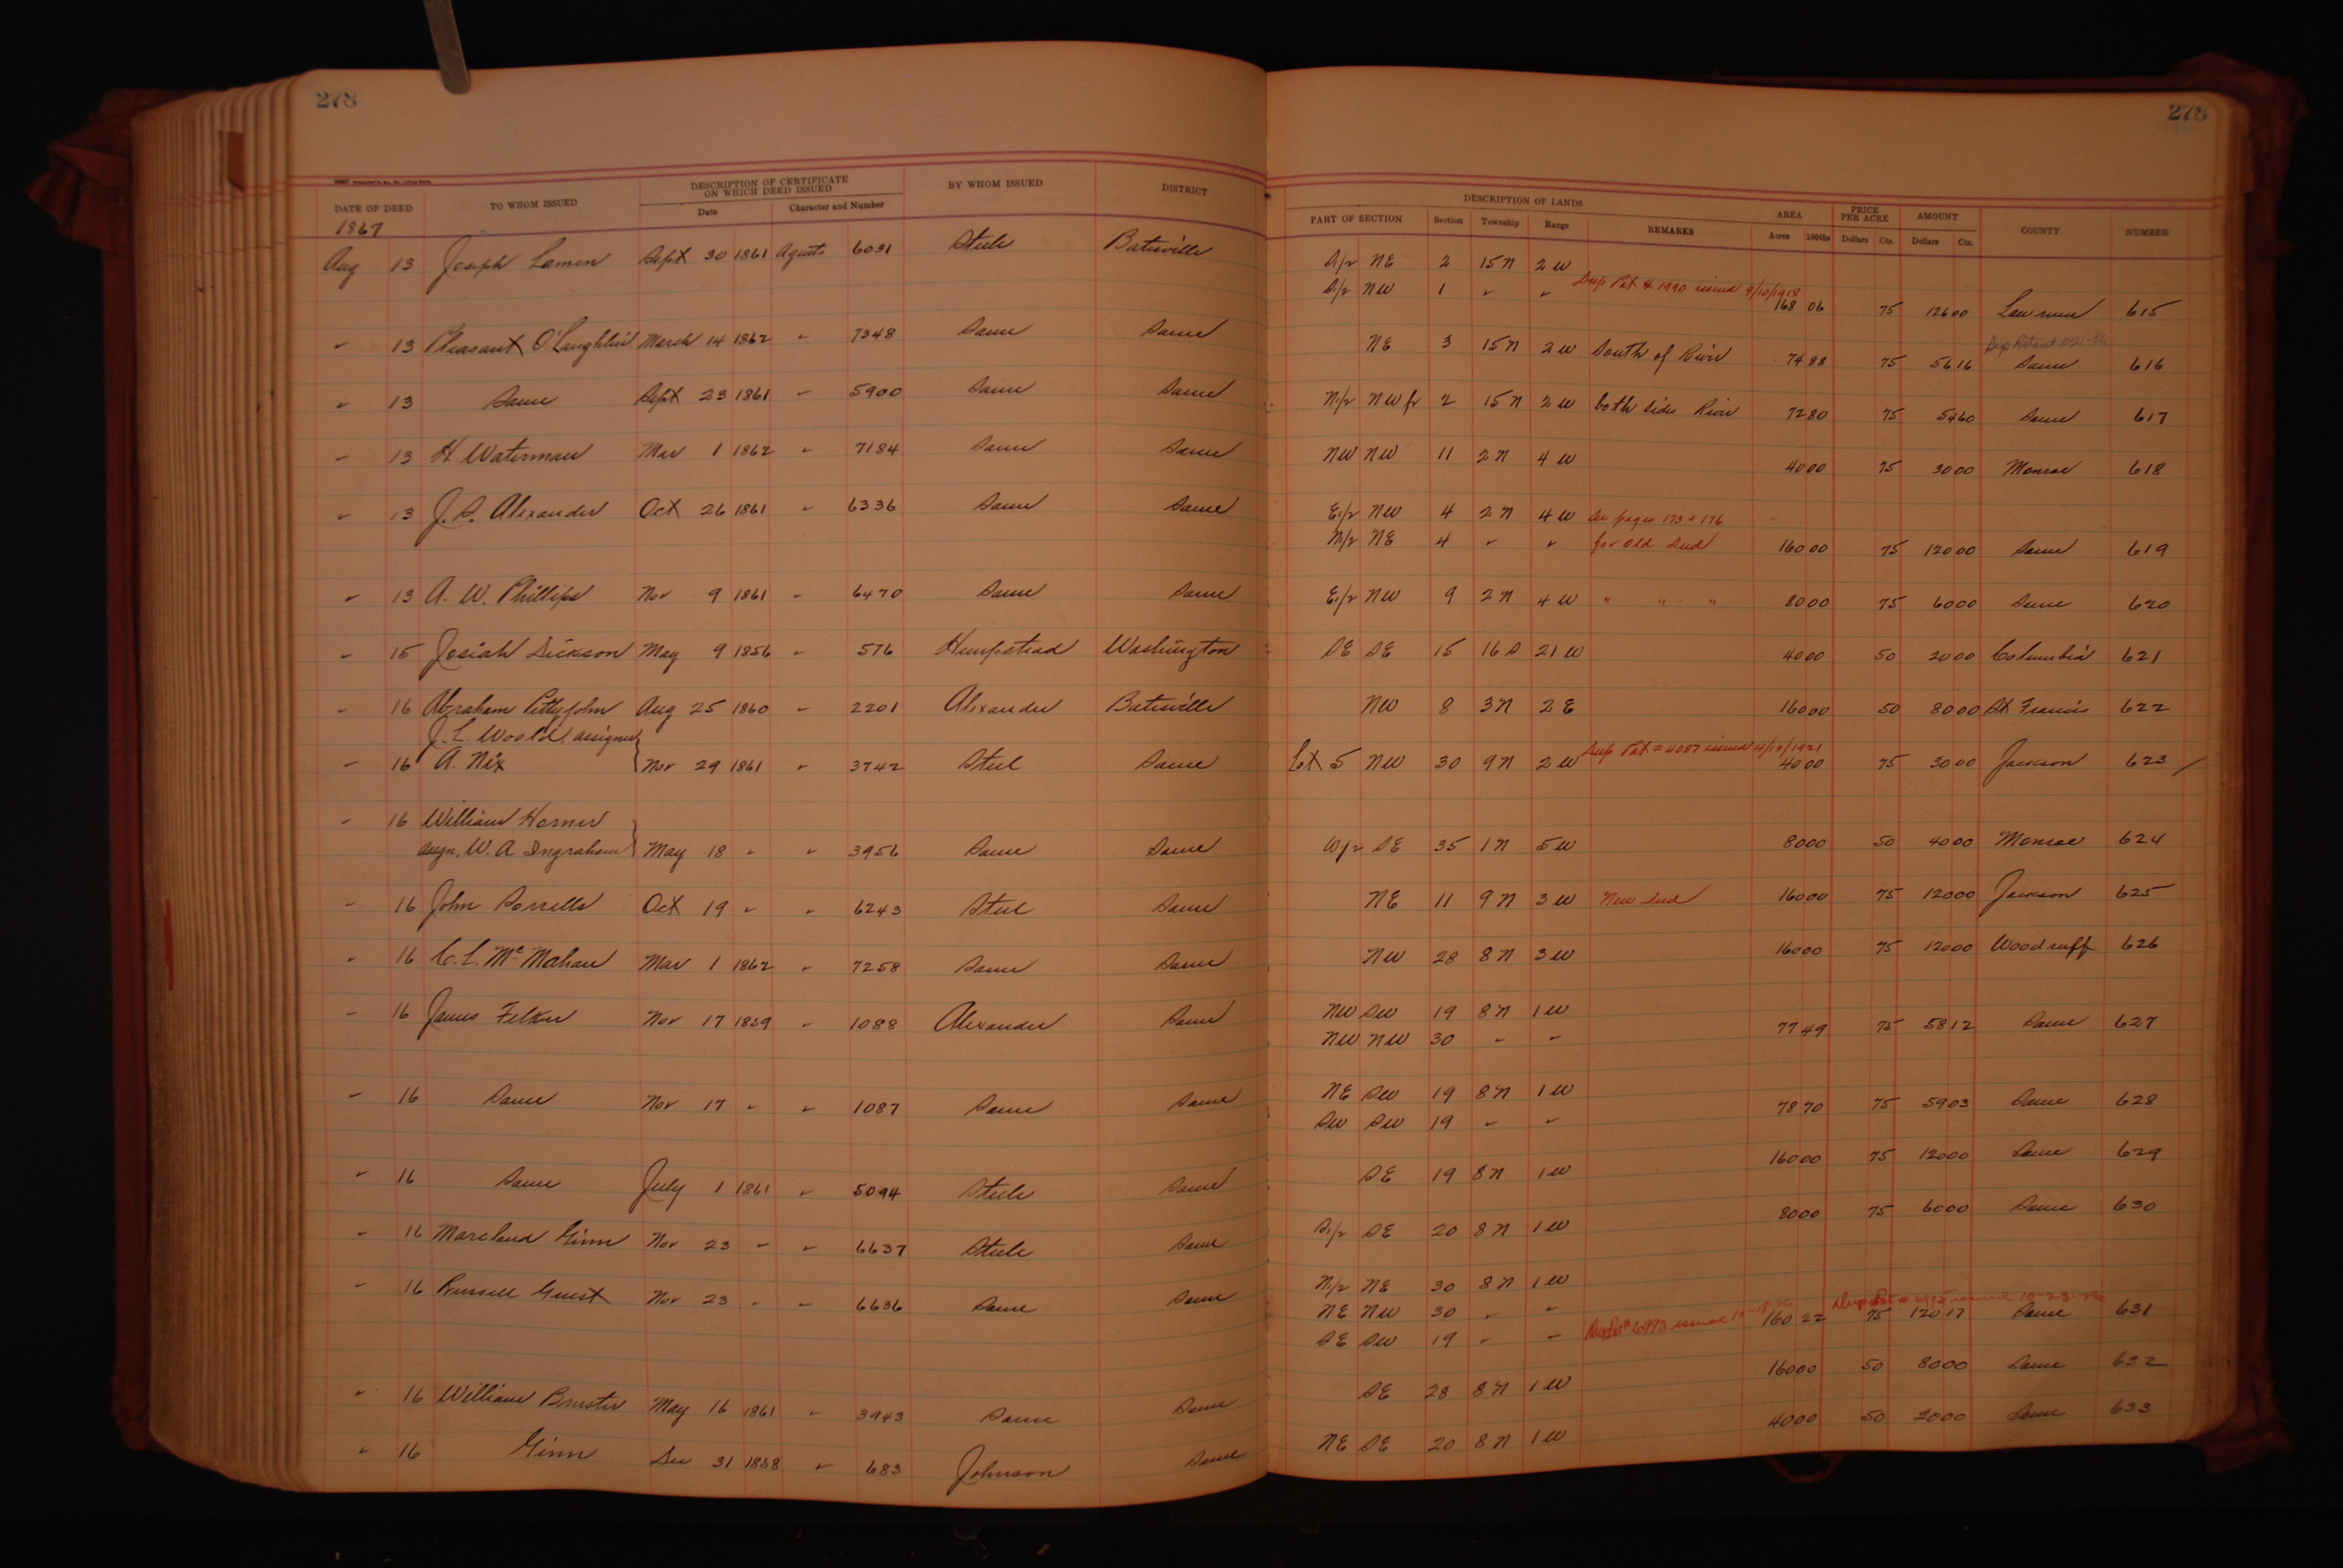 278
278
DATE OF DEED TO WHOM ISSUED DESCRIPTION OF CERTIFICATE ON WHICH DEED ISSUED BY WHOM ISSUED DISTRICT DESCRIPTION OF LANDS AREA PRICE PER ACRE AMOUNT COUNTY NUMBER
Date Character and Number PART OF SECTION Section Township Range REMARKS Acres 100ths Dollars Cts. Dollars Cts.
1867
Aug 13 Joseph Lamen Sept 30 1861 Agents 6031 Steele Batesville S 1/2 NE 2 15 N 2 W
S 1/2 NW 1 " " Dup Pat # 1990 issued 9/10/1918 168 06 75 126 00 Lawrence 615
" 13 Pleasant O'Laughlin March 14 1862 " 7348 Same Same NE 3 15 N 2 W South of River 74 88 75 56 16 Same 616
" 13 Same Sept 23 1861 " 5900 Same Same N 1/2 NW fr 2 15 N 2 W both sides River 72 80 75 54 60 Same 617
" 13 H Waterman Mar 1 1862 " 7184 Same Same NW NW 11 2 N 4 W 40 00 75 30 00 Monroe 618
" 13 J. S. Alexander Oct 26 1861 " 6336 Same Same E 1/2 NW 4 2 N 4 W See pages 173 + 176
N 1/2 NE 4 " " for old Deed 160 00 75 120 00 Same 619
" 13 A. W. Phillips Nov 9 1861 " 6470 Same Same E 1/2 NW 9 2 N 4 W " " " 80 00 75 60 00 Same 620
" 15 Josiah Dickson May 9 1856 " 576 Hempstead Washington SE SE 15 16 S 21 W 40 00 50 20 00 Columbia 621
" 16 Abraham Pettyjohn Aug 25 1860 " 2201 Alexander Batesville NW 8 3 N 2 E 160 00 50 80 00 St Francis 622
J. L. Woold assignee
" 16 A. Nix Nov 29 1861 " 3742 Steel Same Lot 5 NW 30 9 N 2 W Dup Pat # 4087 issued 4/19/1921 40 00 75 30 00 Jackson 623
" 16 William Horner
asgn. W. A Ingraham May 18 " " 3956 Same Same W 1/2 SE 35 1 N 5 W 80 00 50 40 00 Monroe 624
" 16 John Sorrells Oct 19 " " 6243 Steel Same NE 11 9 N 3 W New Deed 160 00 75 120 00 Jackson 625
" 16 C. L. McMahan Mar 1 1862 " 7258 Same Same NW 28 8 N 3 W 160 00 75 120 00 Woodruff 626
" 16 James Felker Nov 17 1859 " 1088 Alexander Same NW SW 19 8 N 1 W
NW NW 30 " " 77 49 75 58 12 Same 627
" 16 Same Nov 17 " " 1087 Same Same NE SW 19 8 N 1 W
SW SW 19 " " 78 70 75 59 03 Same 628
" 16 Same July 1 1861 " 5094 Steele Same SE 19 8 N 1 W 160 00 75 120 00 Same 629
" 16 Moreland Ginn Nov 23 " " 6637 Steele Same S 1/2 SE 20 8 N 1 W 80 00 75 60 00 Same 630
" 16 Russell Guest Nov 23 " " 6636 Same Same N 1/2 NE 30 8 N 1 W
NE NW 30 " " 160 22 75 120 17 Same 631
SE SW 19 " " Dup Pat # 6993 issued
" 16 William Bruster May 16 1861 " 3943 Same Same SE 28 8 N 1 W 160 00 50 80 00 Same 632
" 16 Ginn Dec 31 1858 " 683 Johnson Same NE SE 20 8 N 1 W 40 00 50 20 00 Same 633